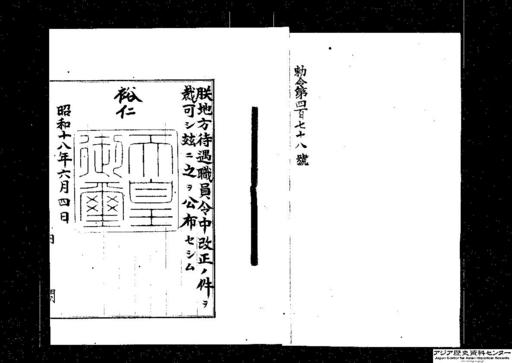 勅令第四百七十八號
朕地方待遇職員令中改正ノ件ヲ
裁可シ玆ニ之ヲ公布セシム
裕仁
天皇
御璽
昭和十八年六月四日
アジア歴史資料センター
Japan Center for Asian Historical Records